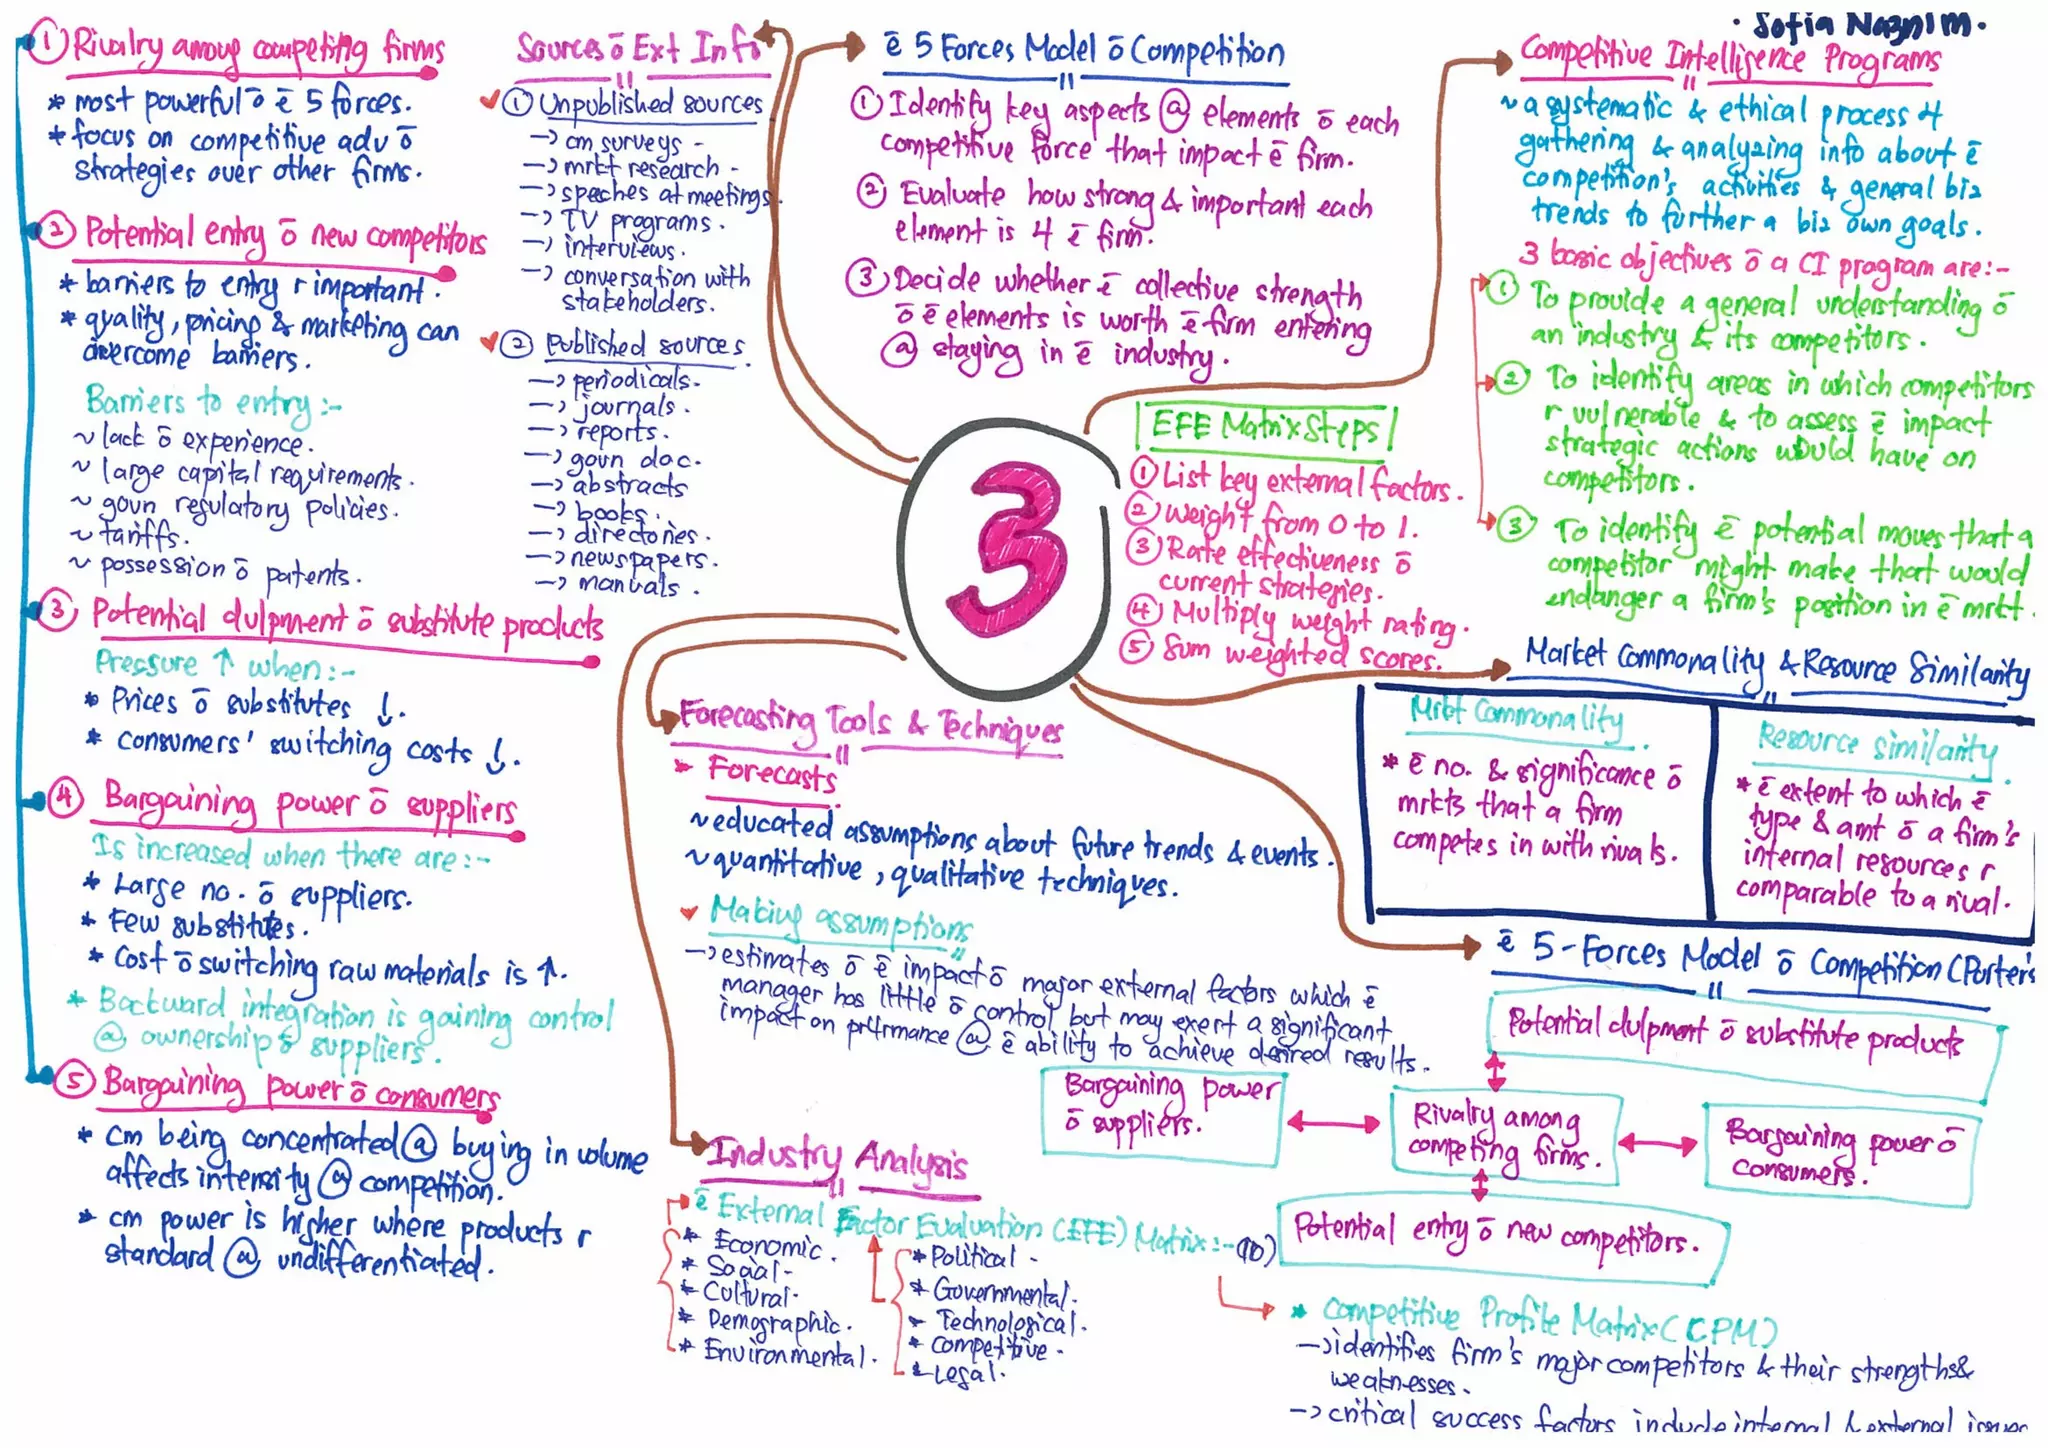 · Sofia Naznim.
① Rivalry among competing firms
* most powerful ō ē 5 forces.
* focus on competitive adv ō
strategies over other firms.
② Potential entry ō new competitors
* barriers to entry r important.
* quality, pricing & marketing can
overcome barriers.
Barriers to entry :-
~ lack ō experience.
~ large capital requirements.
~ govn regulatory policies.
~ tariffs.
~ possession ō patents.
③ Potential dvlpment ō substitute products
Pressure ↑ when :-
* Prices ō substitutes ↓.
* consumers' switching costs ↓.
④ Bargaining power ō suppliers
Is increased when there are :-
* Large no. ō suppliers.
* Few substitutes.
* Cost ō switching raw materials is ↑.
* Backward integration is gaining control
@ ownership ō suppliers.
⑤ Bargaining power ō consumers
* cm being concentrated @ buying in volume
affects intensity @ competition.
* cm power is higher where products r
standard @ undifferentiated.
Sources ō Ext Info
① Unpublished sources
→ cm surveys -
→ mrkt research -
→ speches at meetings.
→ TV programs.
→ interviews.
→ conversation with
stakeholders.
② Published sources.
→ periodicals.
→ journals.
→ reports.
→ govn doc.
→ abstracts
→ books.
→ directories.
→ newspapers.
→ manuals.
ē 5 Forces Model ō Competition
① Identify key aspects @ elements ō each
competitive force that impact ē firm.
② Evaluate how strong & important each
element is 4 ē firm.
③ Decide whether ē collective strength
ō ē elements is worth ē firm entering
@ staying in ē industry.
3
EFE Matrix Steps
① List key external factors.
② Weight from 0 to 1.
③ Rate effectiveness ō
current strategies.
④ Multiply weight rating.
⑤ Sum weighted scores.
Competitive Intelligence Programs
~ a systematic & ethical process 4
gathering & analyzing info about ē
competition's activities & general biz
trends to further a biz own goals.
3 basic objectives ō a CI program are :-
① To provide a general understanding ō
an industry & its competitors.
② To identify areas in which competitors
r vulnerable & to assess ē impact
strategic actions would have on
competitors.
③ To identify ē potential moves that a
competitor might make that would
endanger a firm's position in ē mrkt.
Market Commonality & Resource Similarity
Mrkt Commonality
* ē no. & significance ō
mrkts that a firm
competes in with rivals.
Resource Similarity
* ē extent to which ē
type & amt ō a firm's
internal resources r
comparable to a rival.
Forecasting Tools & Techniques
Forecasts
~ educated assumptions about future trends & events.
~ quantitative, qualitative techniques.
Making assumptions
→ estimates ō ē impact ō major external factors which ē
manager has little ō control but may exert a significant
impact on pr4rmance @ ē ability to achieve desired results.
ē 5-Forces Model ō Competition (Porter's
Potential dvlpment ō substitute products
Bargaining power
ō suppliers.
Rivalry among
competing firms.
Bargaining power ō
consumers.
Potential entry ō new competitors.
Industry Analysis
ē External Factor Evaluation (EFE) Matrix :- (10)
* Economic.
* Social -
* Cultural.
* Demographic.
* Environmental.
* Political -
* Governmental.
* Technological.
* Competitive -
* Legal.
* Competitive Profile Matrix (CPM)
→ identifies firm's major competitors & their strengths &
weaknesses.
→ critical success factors include internal & external issues